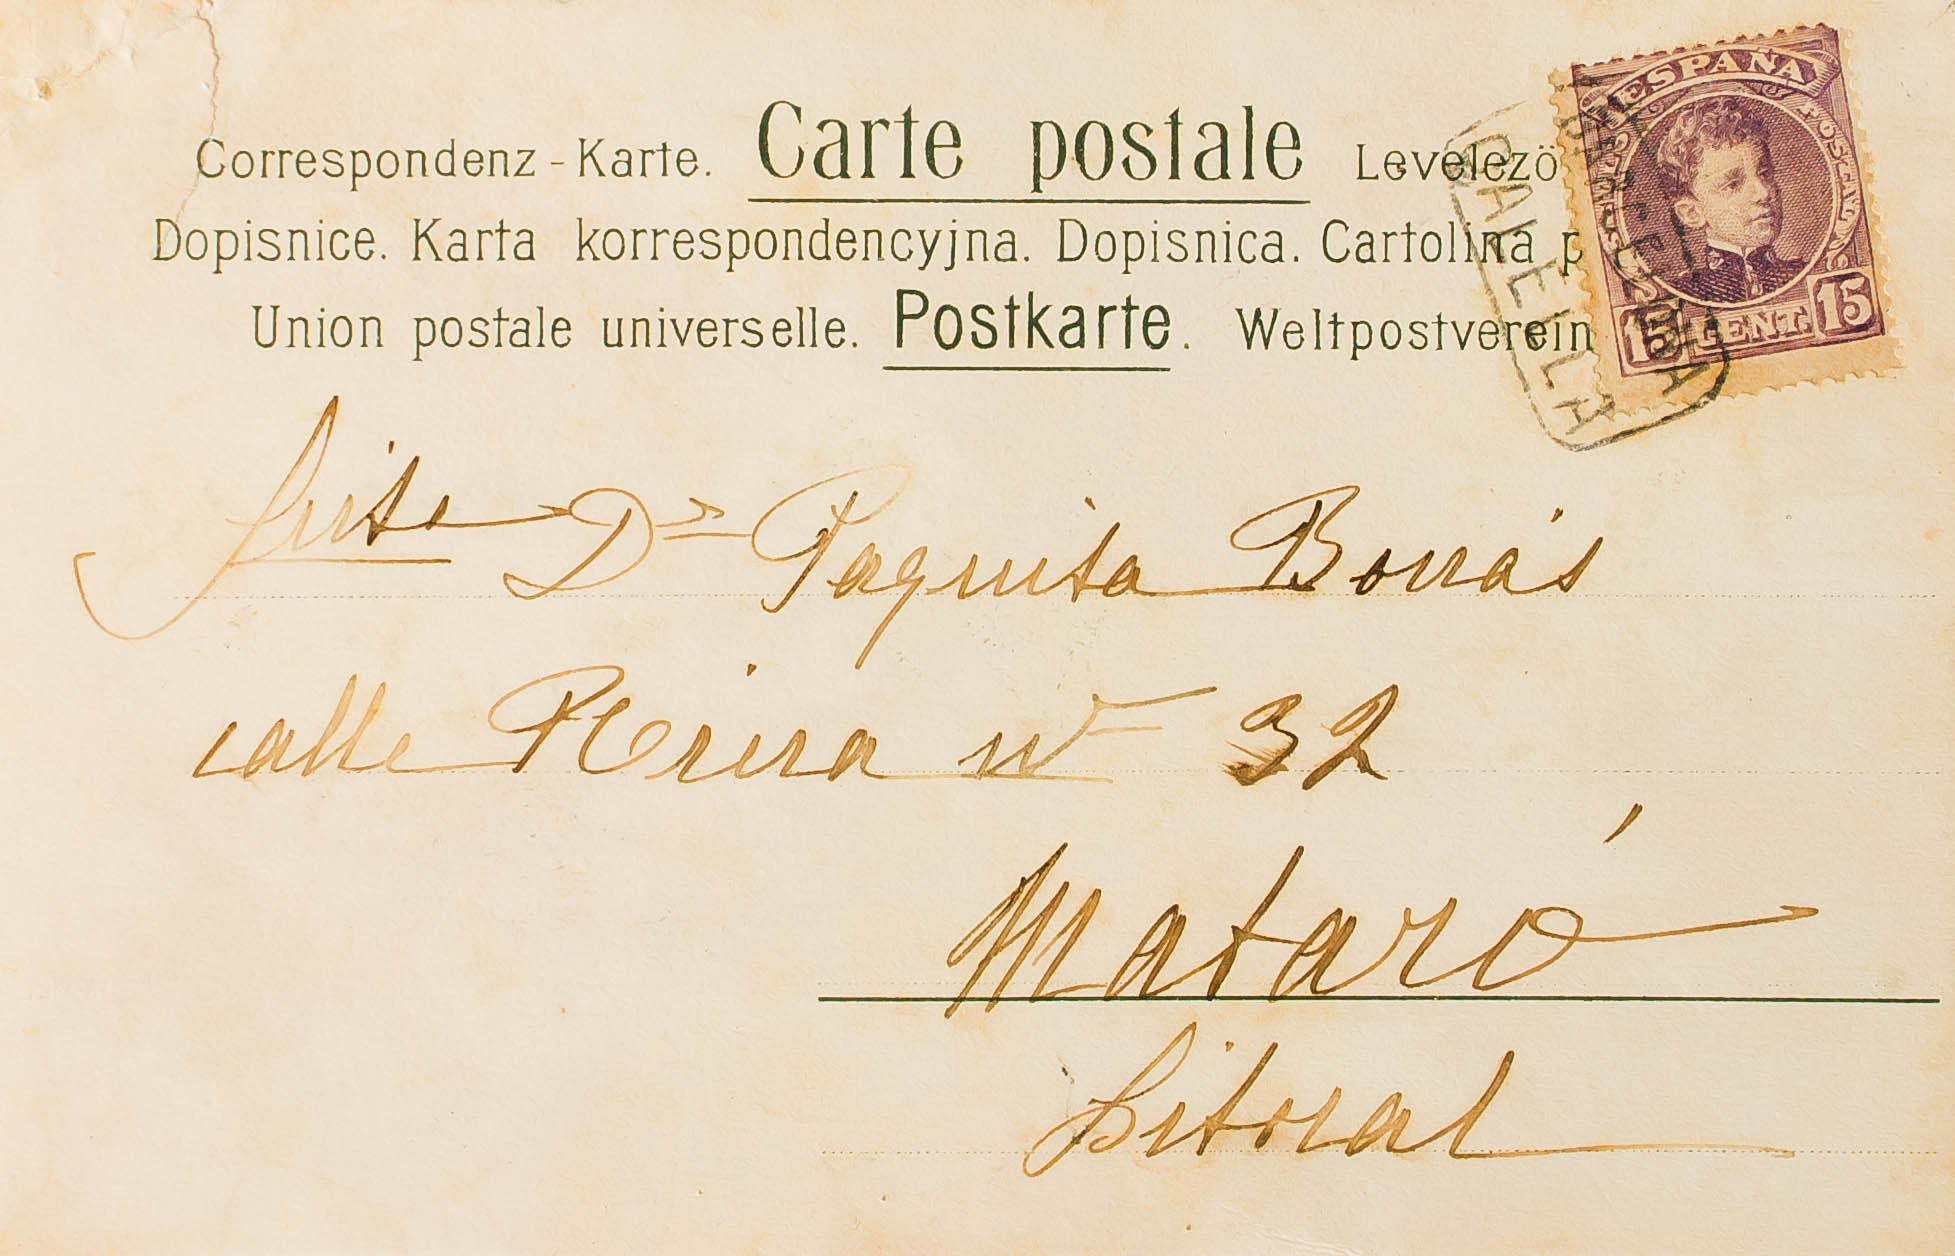 Correspondenz-Karte. Carte postale Levelezö
Dopisnice. Karta korrespondencyjna. Dopisnica. Cartolina p
Union postale universelle. Postkarte. Weltpostverein
ESPAÑA
15 CENT. 15
CALELLA
BARCELONA
Srita Dª Paquita Borrás
calle Reina nº 32
Mataró
Litoral